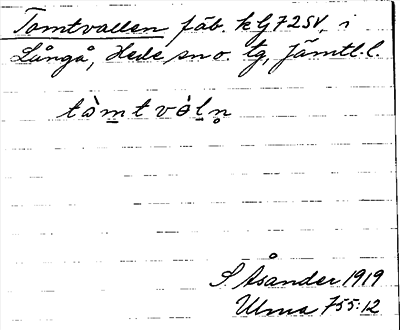 Tomtvallen fäb. k lj 7 25V, i
Långå, Hede sn o. tg, Jämtl. l.
tòmtvòln̥
S Åsander 1919
Ulma 755:12